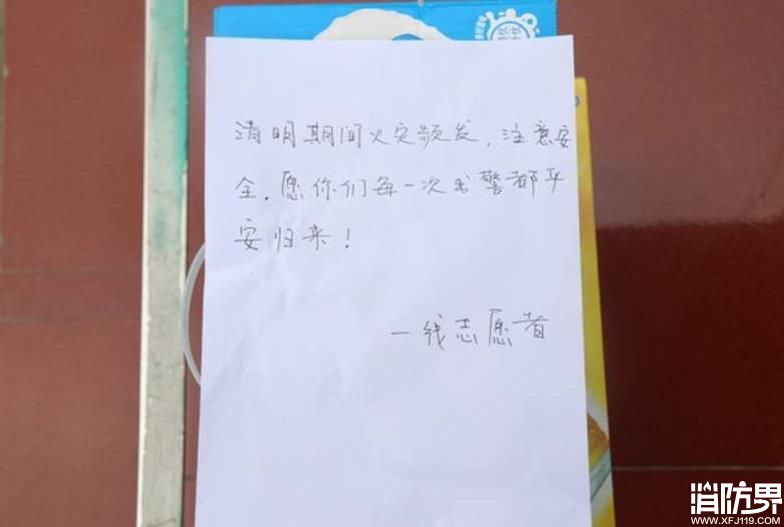 清明期间火灾频发，注意安
全，愿你们每一次出警都平
安归来！
一线志愿者
消防界
WWW.XFJ119.COM